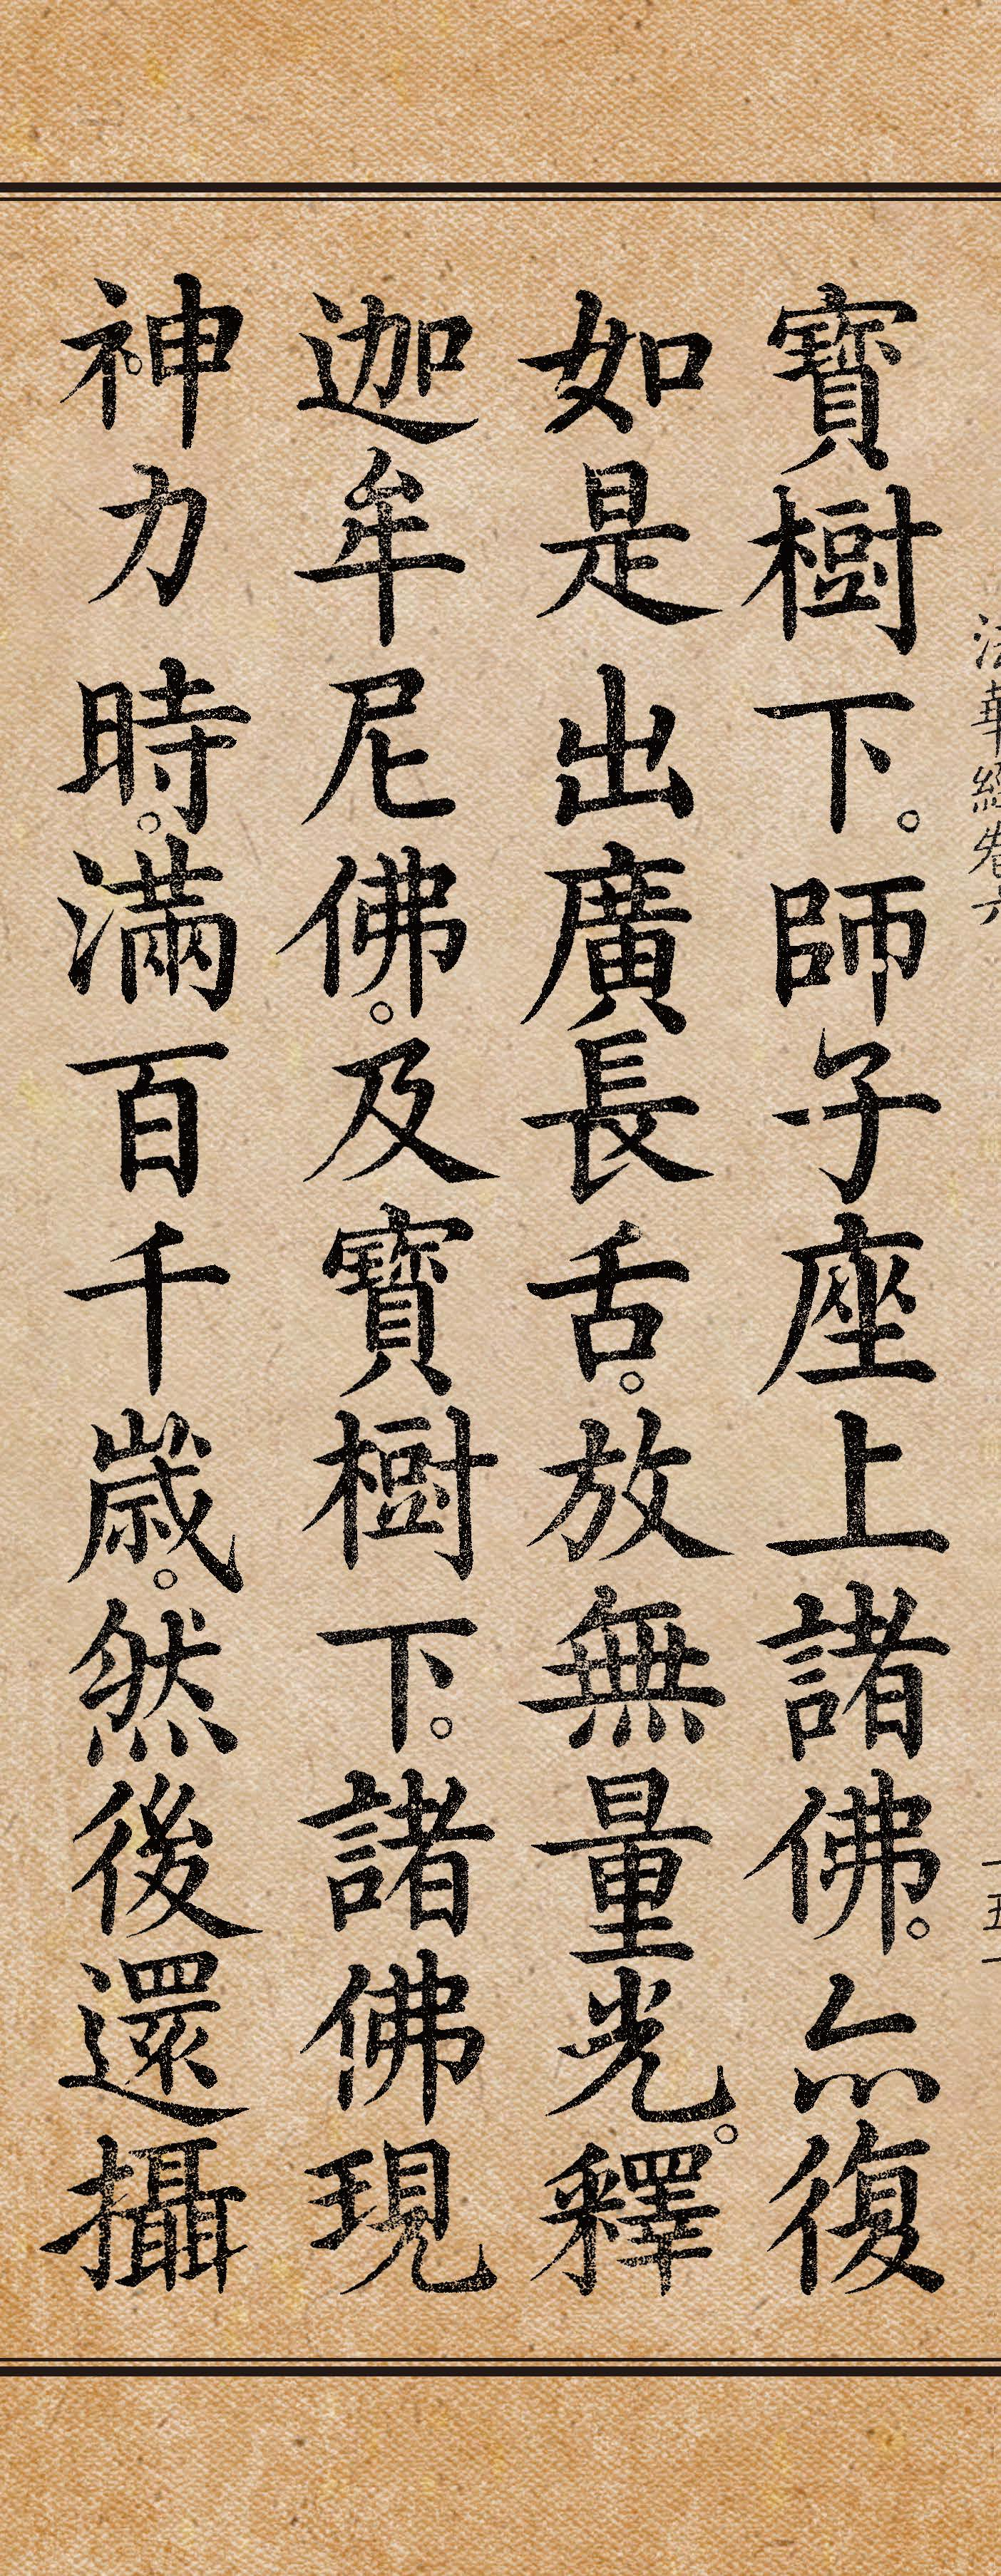 法華經卷六
一五一
寶樹下。師子座上諸佛。亦復
如是出廣長舌。放無量光。釋
迦牟尼佛。及寶樹下。諸佛現
神力時。滿百千歲。然後還攝